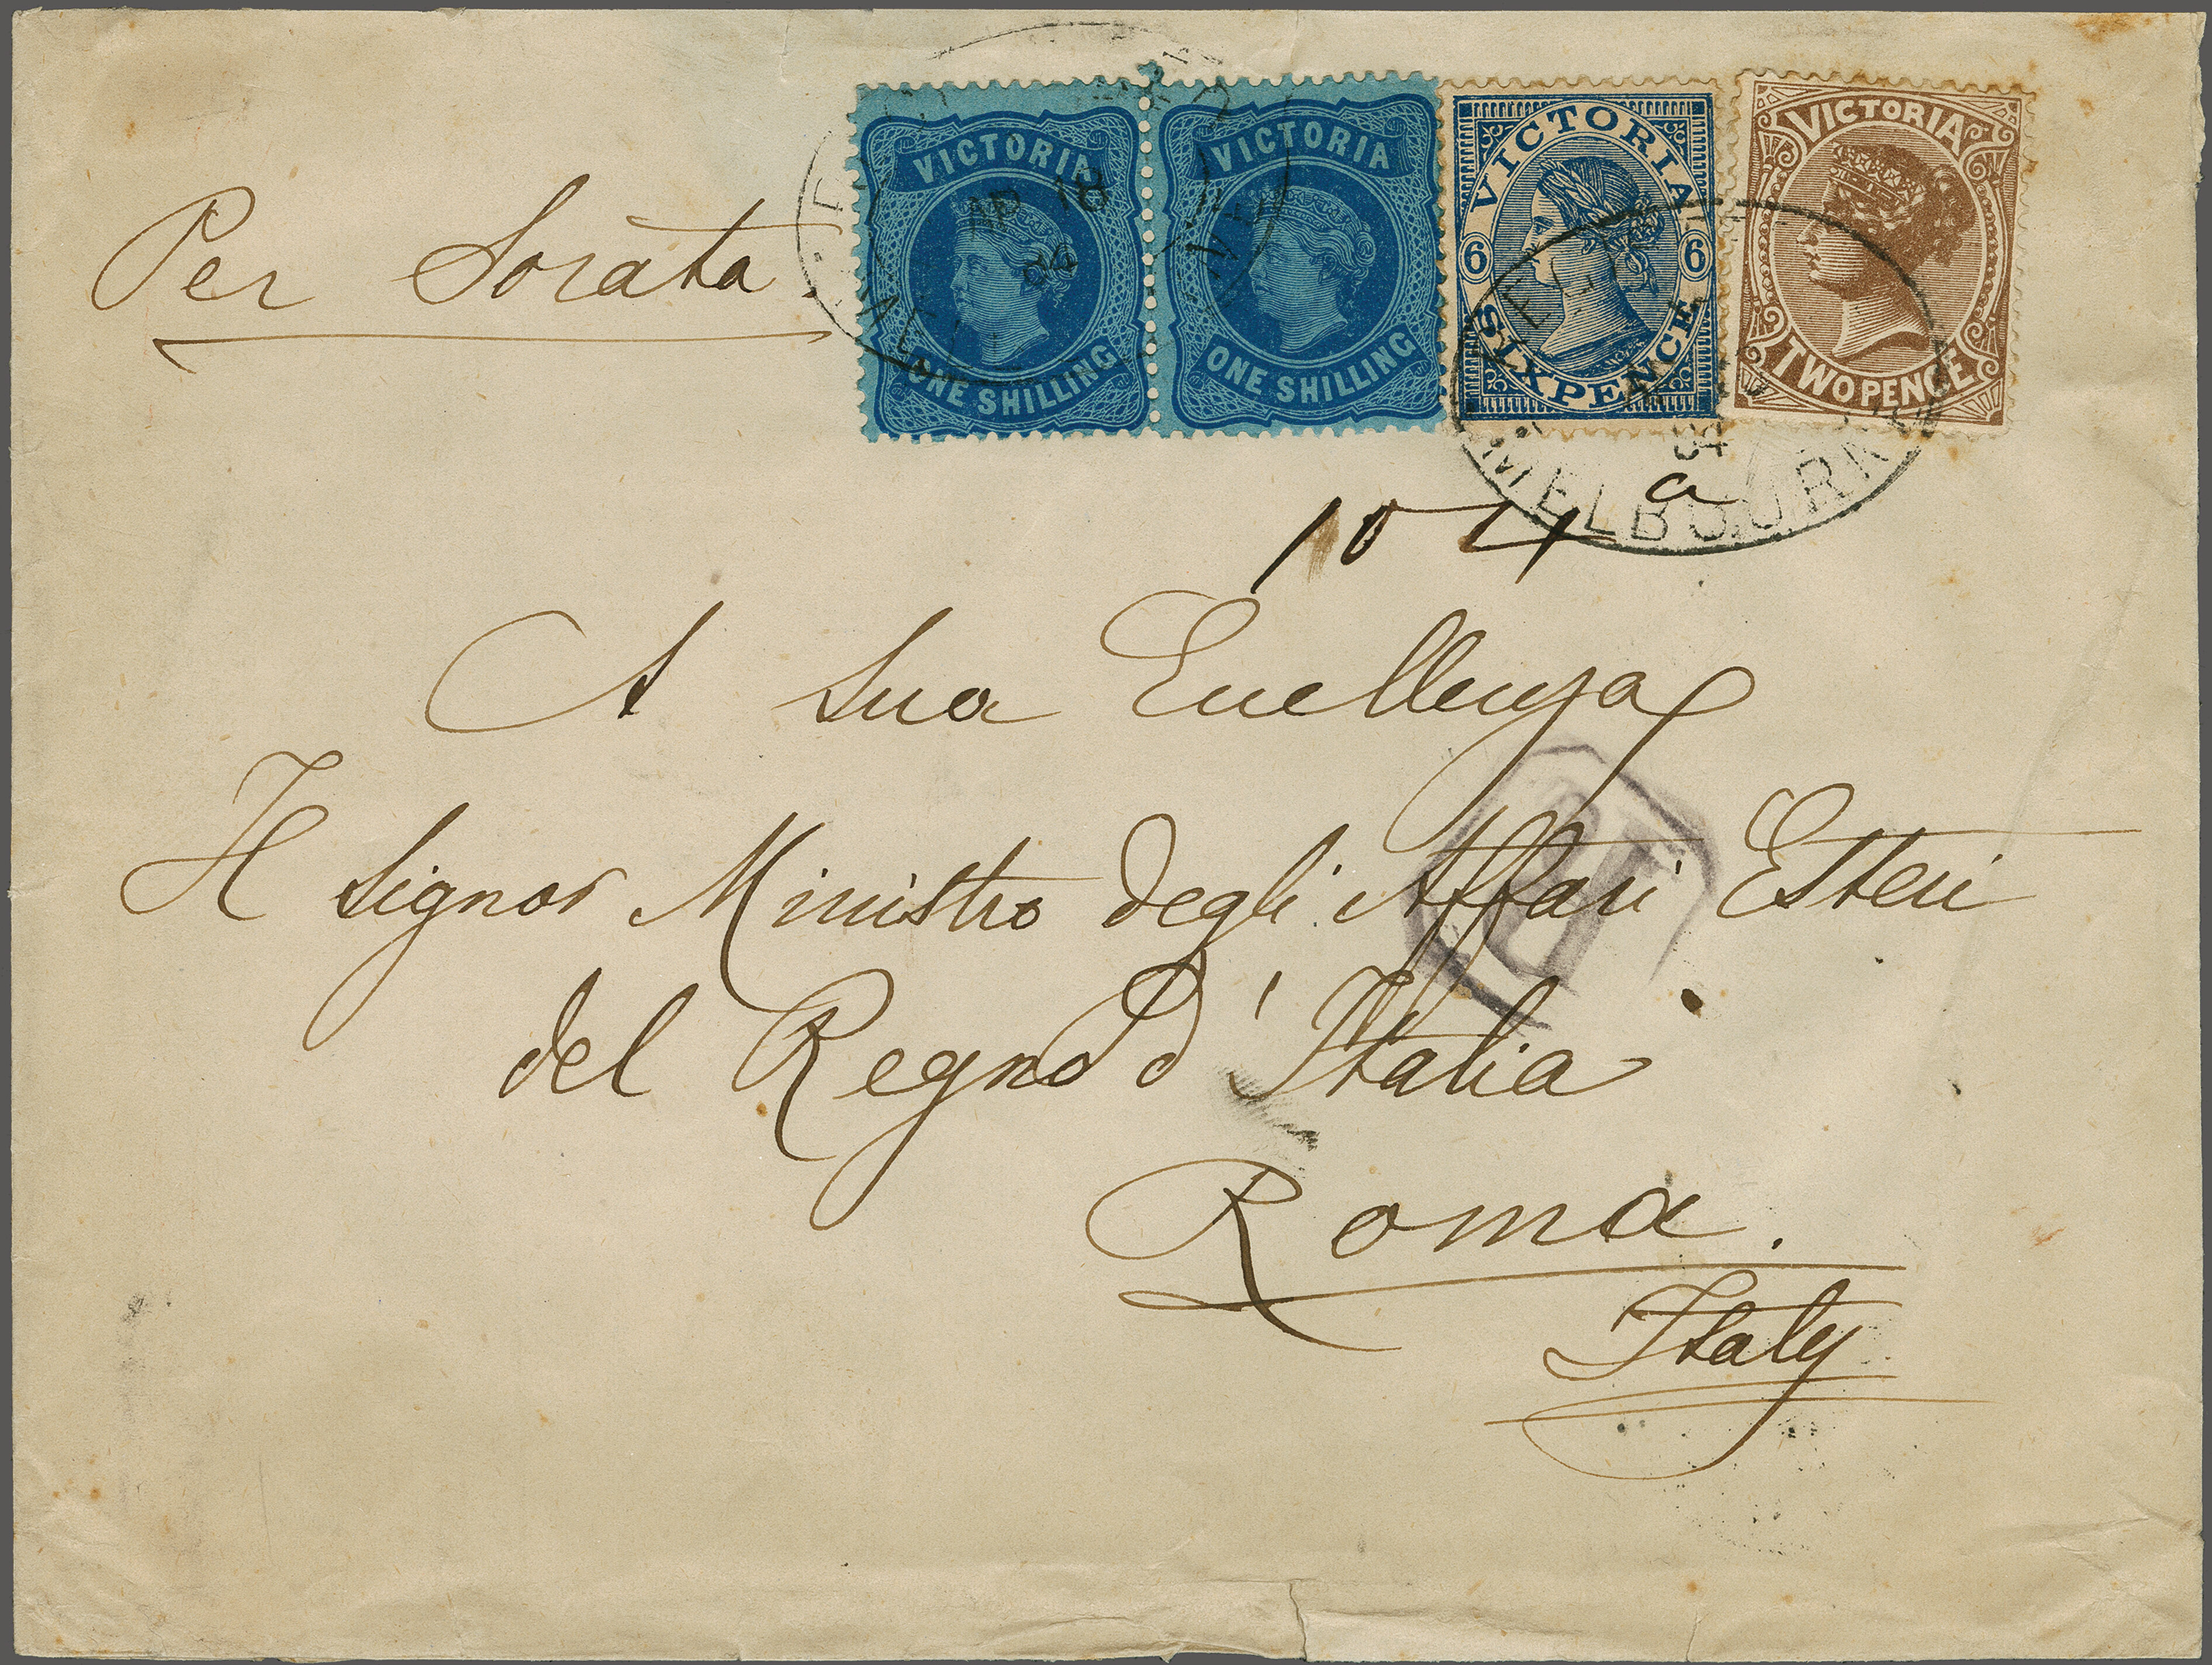 VICTORIA
ONE SHILLING
VICTORIA
ONE SHILLING
VICTORIA
6 6
SIXPENCE
VICTORIA
TWO PENCE
AP 18
84
MELBOURNE
84
Per Sorata.
A Sua Eccellenza
Il Signor Ministro degli Affari Esteri
del Regno d'Italia
Roma.
Italy